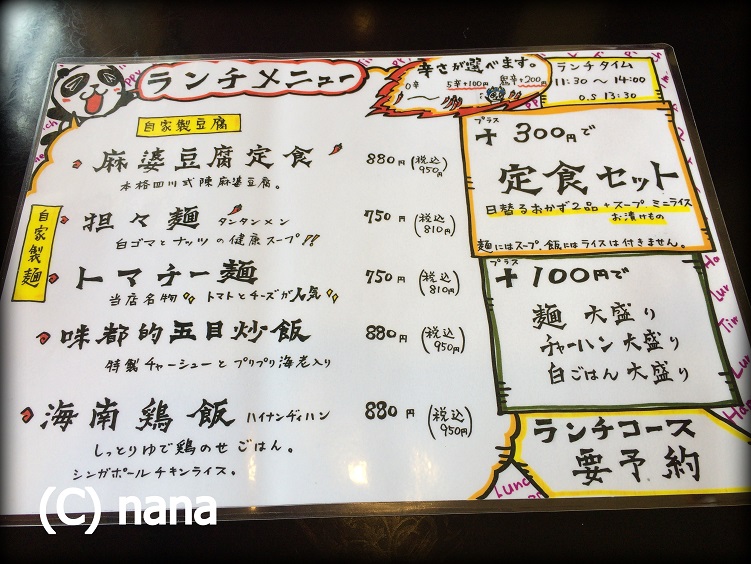 ランチメニュー
辛さが選べます。
0辛 〜 5辛+100円 鬼辛+200円
ランチタイム
11:30 〜 14:00
o.s 13:30
自家製豆腐
麻婆豆腐定食 880円 (税込950円)
本格四川式陳麻婆豆腐。
自家製麺
担々麺 タンタンメン 750円 (税込810円)
白ゴマとナッツの健康スープ!!
トマチー麺 750円 (税込810円)
当店名物 トマトとチーズが人気
咪都的五目炒飯 880円 (税込950円)
特製チャーシューとプリプリ海老入り
海南鶏飯 ハイナンヂィハン 880円 (税込950円)
しっとりゆで鶏のせごはん。
シンガポールチキンライス。
プラス
+300円で
定食セット
日替るおかず2品+スープ ミニライス
お漬けもの
麺にはスープ、飯にはライスは付きません。
プラス
+100円で
麺 大盛り
チャーハン 大盛り
白ごはん 大盛り
ランチコース
要予約
Lunch
(C) nana